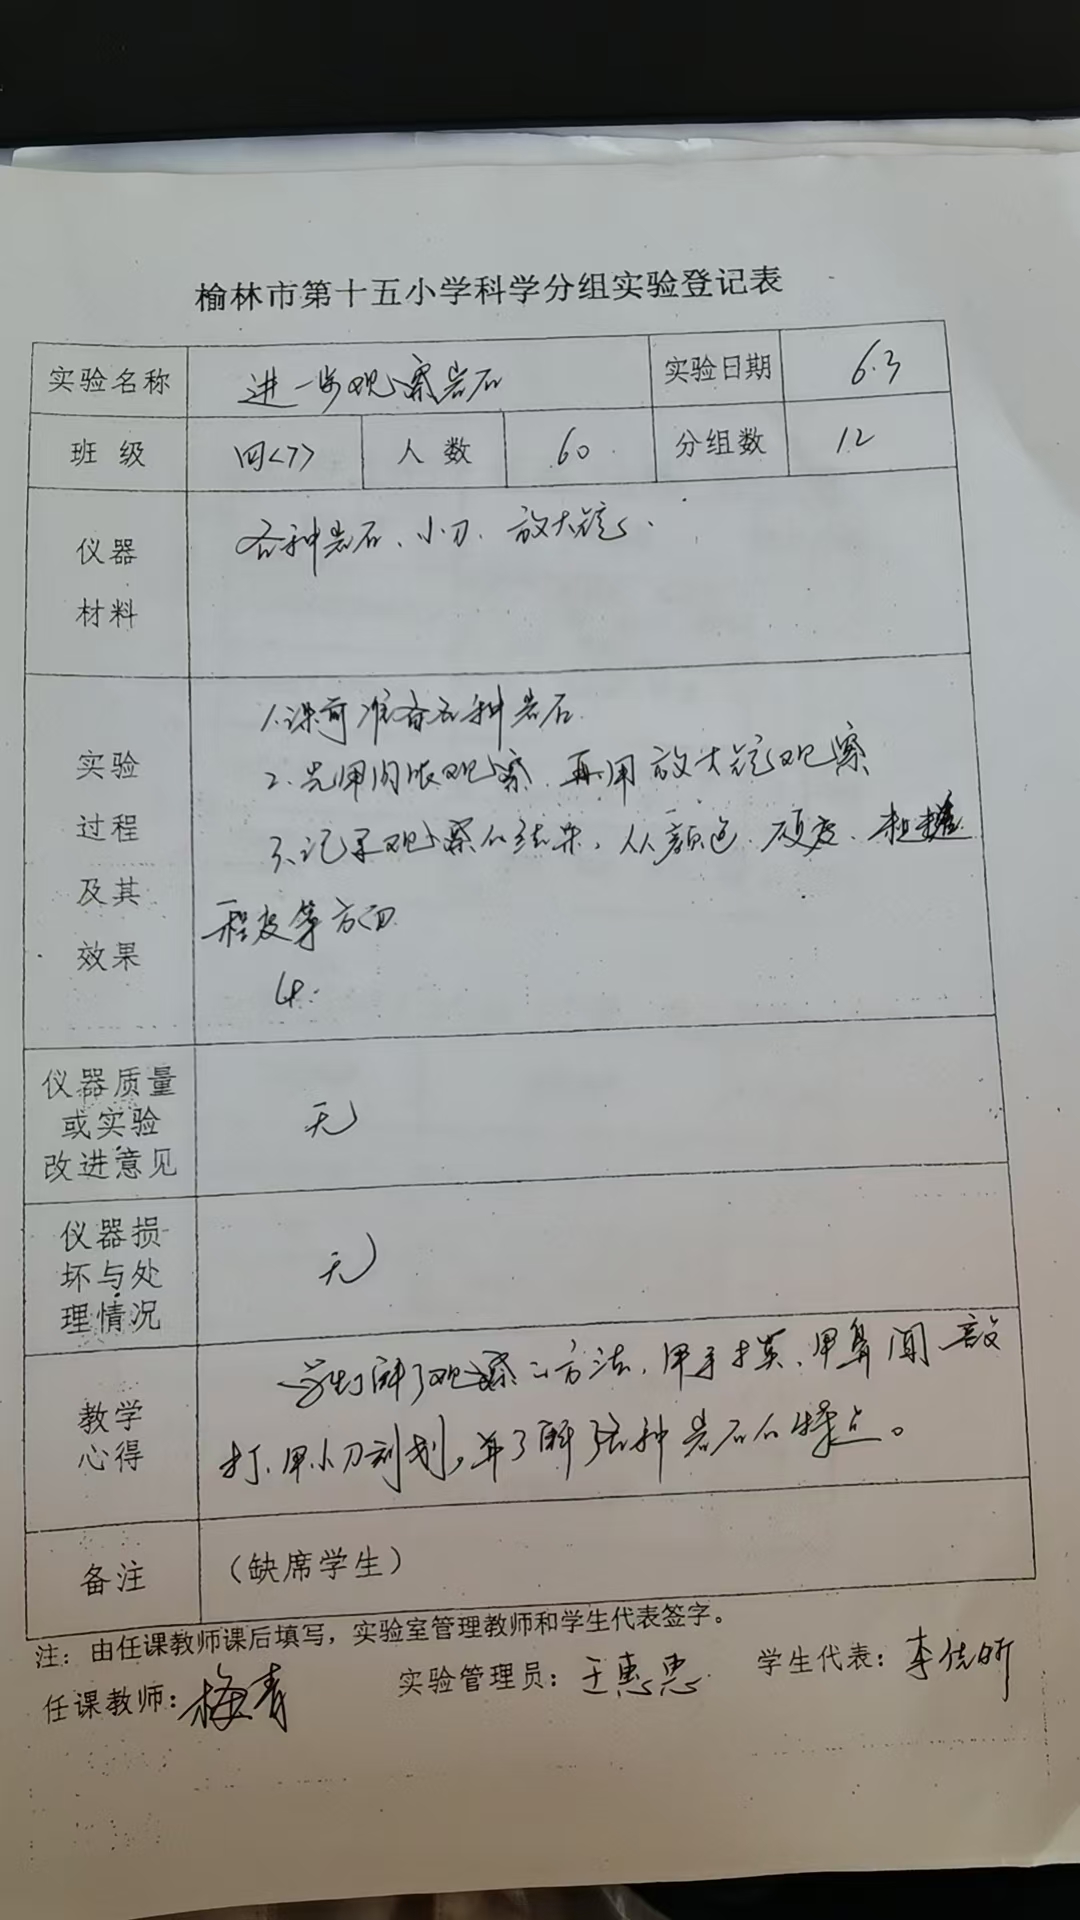 榆林市第十五小学科学分组实验登记表
实验名称 进一步观察岩石 实验日期 6.3
班级 四<7> 人数 60 分组数 12
仪器材料 各种岩石、小刀、放大镜、
实验过程及其效果
1.课前准备各种岩石
2.先用肉眼观察,再用放大镜观察
3.记录观察的结果,从颜色、硬度、粗糙
程度等方面
4.
仪器质量或实验改进意见 无
仪器损坏与处理情况 无
教学心得
学生了解了观察的方法,用手摸、用鼻闻、敲
打、用小刀刻划,并了解了各种岩石的特点。
备注 (缺席学生)
注:由任课教师课后填写,实验室管理教师和学生代表签字。
任课教师:梅青 实验管理员:王惠惠 学生代表:李